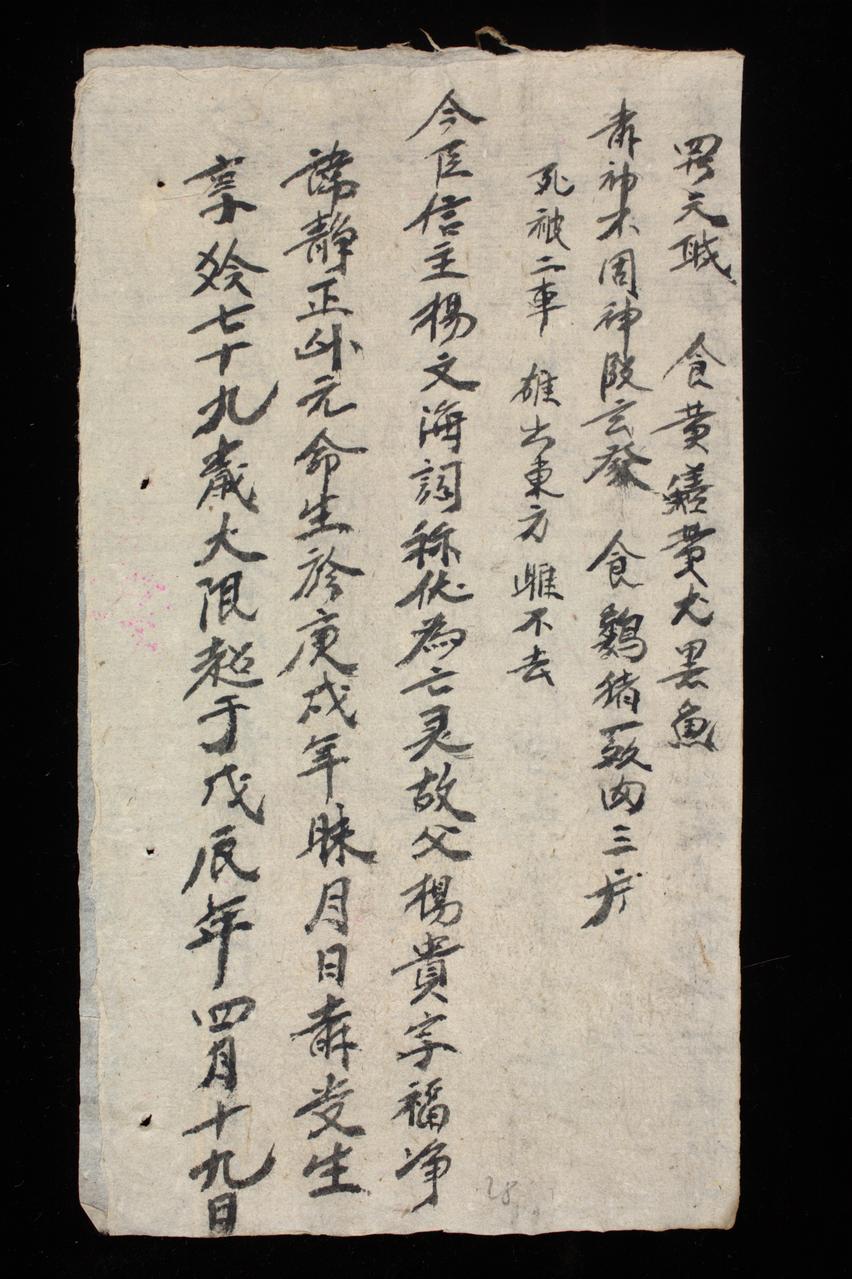 天 食黄鱔黄犬黑魚
神不周神殿玄發 食鷄猪 肉三
死被二車 雄出東方雌不去
今臣信主楊文海詞称伏為亡灵故父楊貴字福净
諱静正 元命生於庚戌年 月日 受生
享 七十九歲大限 于戊辰年四月十九日
28